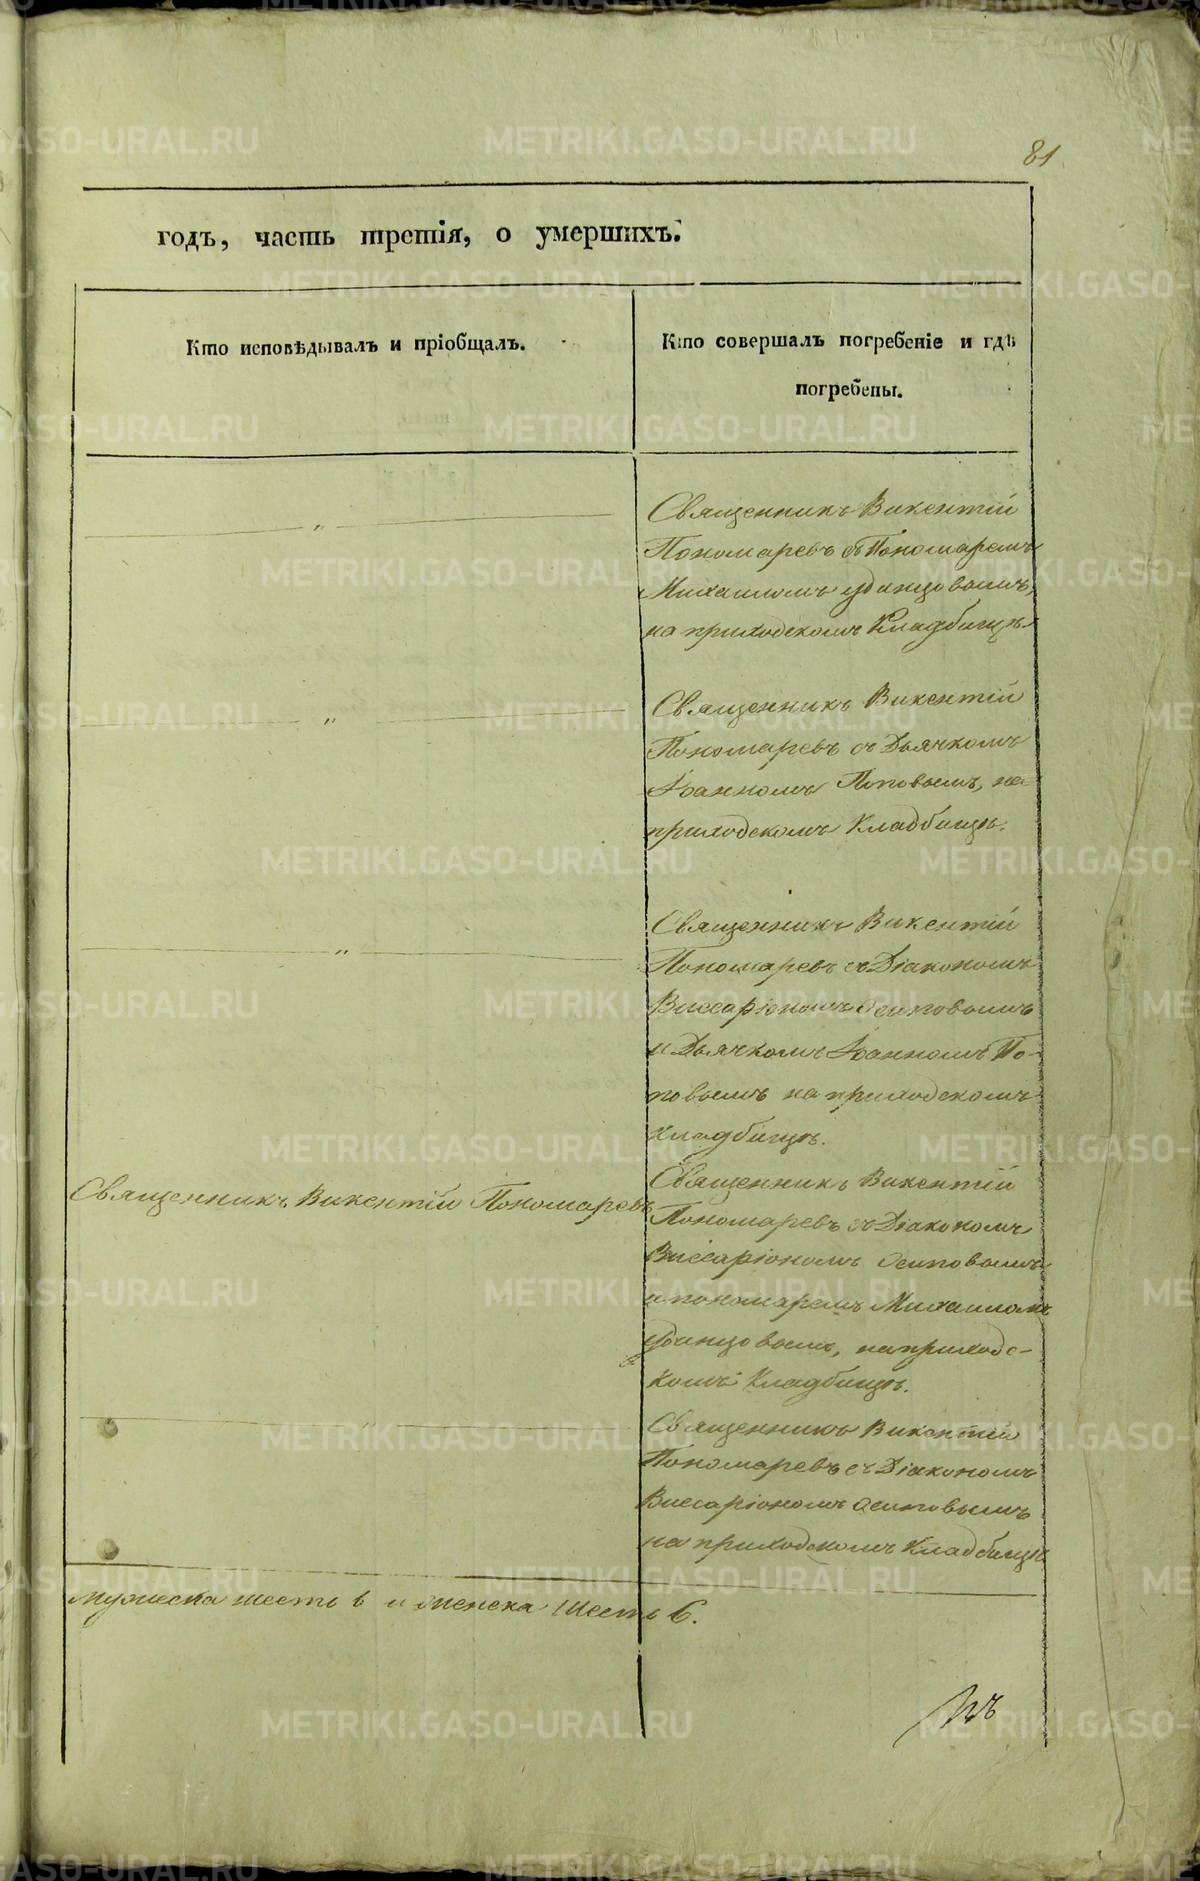 81
годъ, часть третія, о умершихъ.
Кто исповѣдывалъ и пріобщалъ.
Кто совершалъ погребеніе и гдѣ
погребены.
Священникъ Викентій
Пономаревъ съ Пономаремъ
Михаиломъ
на приходскомъ Кладбищѣ
Священникъ Викентій
Пономаревъ съ Дьячкомъ
Іоанномъ Поповымъ, на
приходскомъ Кладбищѣ.
Священникъ Викентій
Пономаревъ съ Діакономъ
Виссаріономъ Осиповымъ
и Дьячкомъ Іоанномъ По-
повымъ на приходскомъ
кладбищѣ.
Священникъ Викентій Пономаревъ
Священникъ Викентій
Пономаревъ съ Діакономъ
Виссаріономъ Осиповымъ
и пономаремъ Михаиломъ
на приход-
скомъ Кладбищѣ.
Священникъ Викентій
Пономаревъ съ Діакономъ
Виссаріономъ Осиповымъ
на приходскомъ Кладбищѣ
мужеска шесть 6 и женска шесть 6.
METRIKI.GASO-URAL.RU